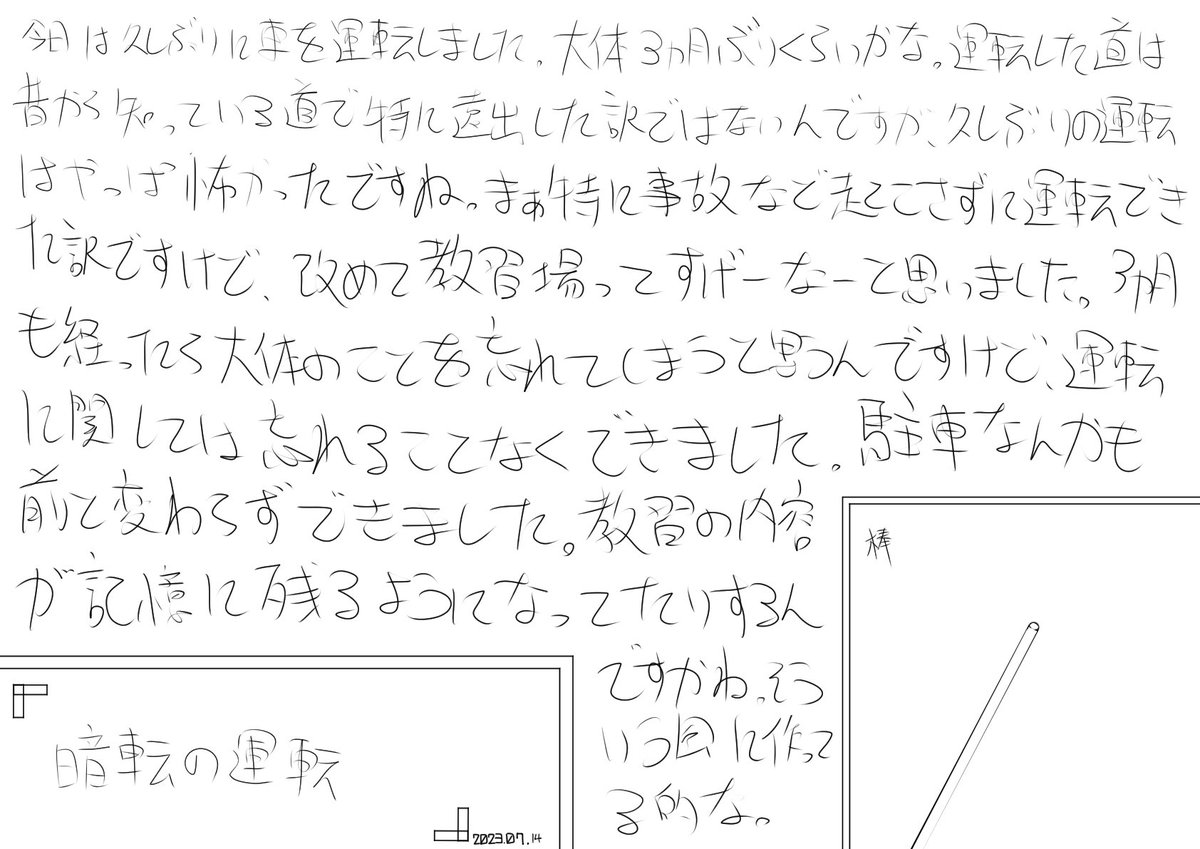 今日は久しぶりに車を運転しました。大体3ヵ月ぶりくらいかな。運転した道は
昔から知っている道で特に遠出した訳ではないんですが、久しぶりの運転
はやっぱ怖かったですね。まぁ特に事故など起こさずに運転でき
た訳ですけど、改めて教習場ってすげーなーと思いました。3ヵ月
も経ったら大体のことを忘れてしまうと思うんですけど、運転
に関しては忘れることなくできました。駐車なんかも
前と変わらずできました。教習の内容
が記憶に残るようになってたりするん
ですかね。そう
いう風に作って
る的な。
棒
暗転の運転
2023.07.14